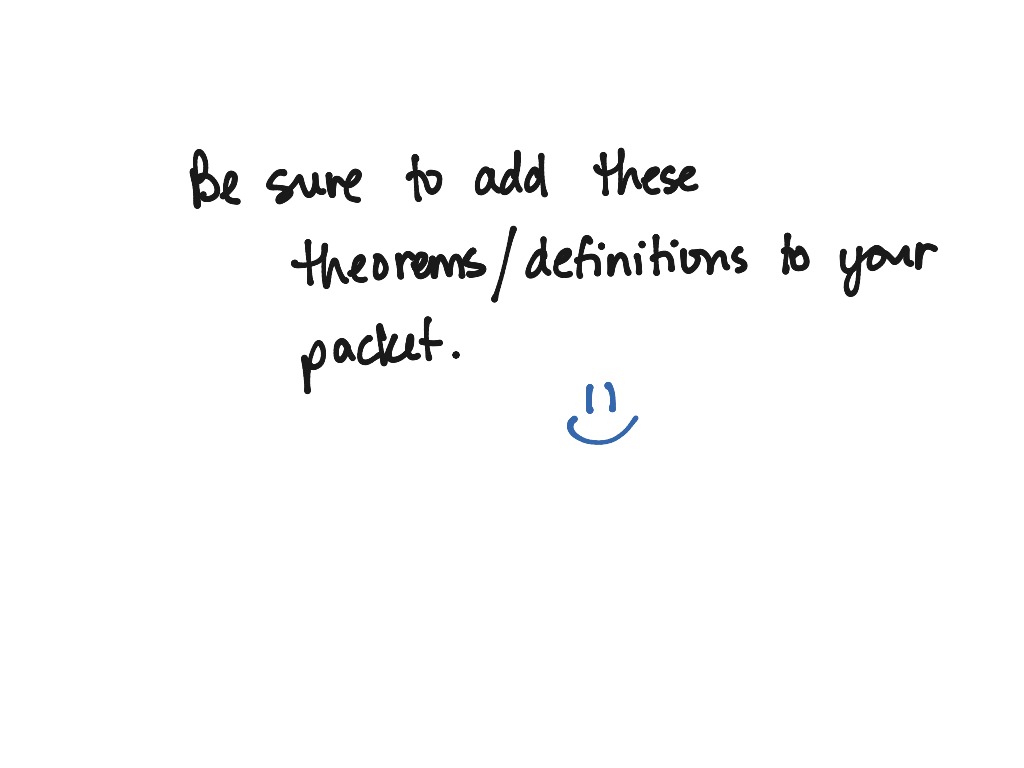 Be sure to add these
theorems/definitions to your
packet.